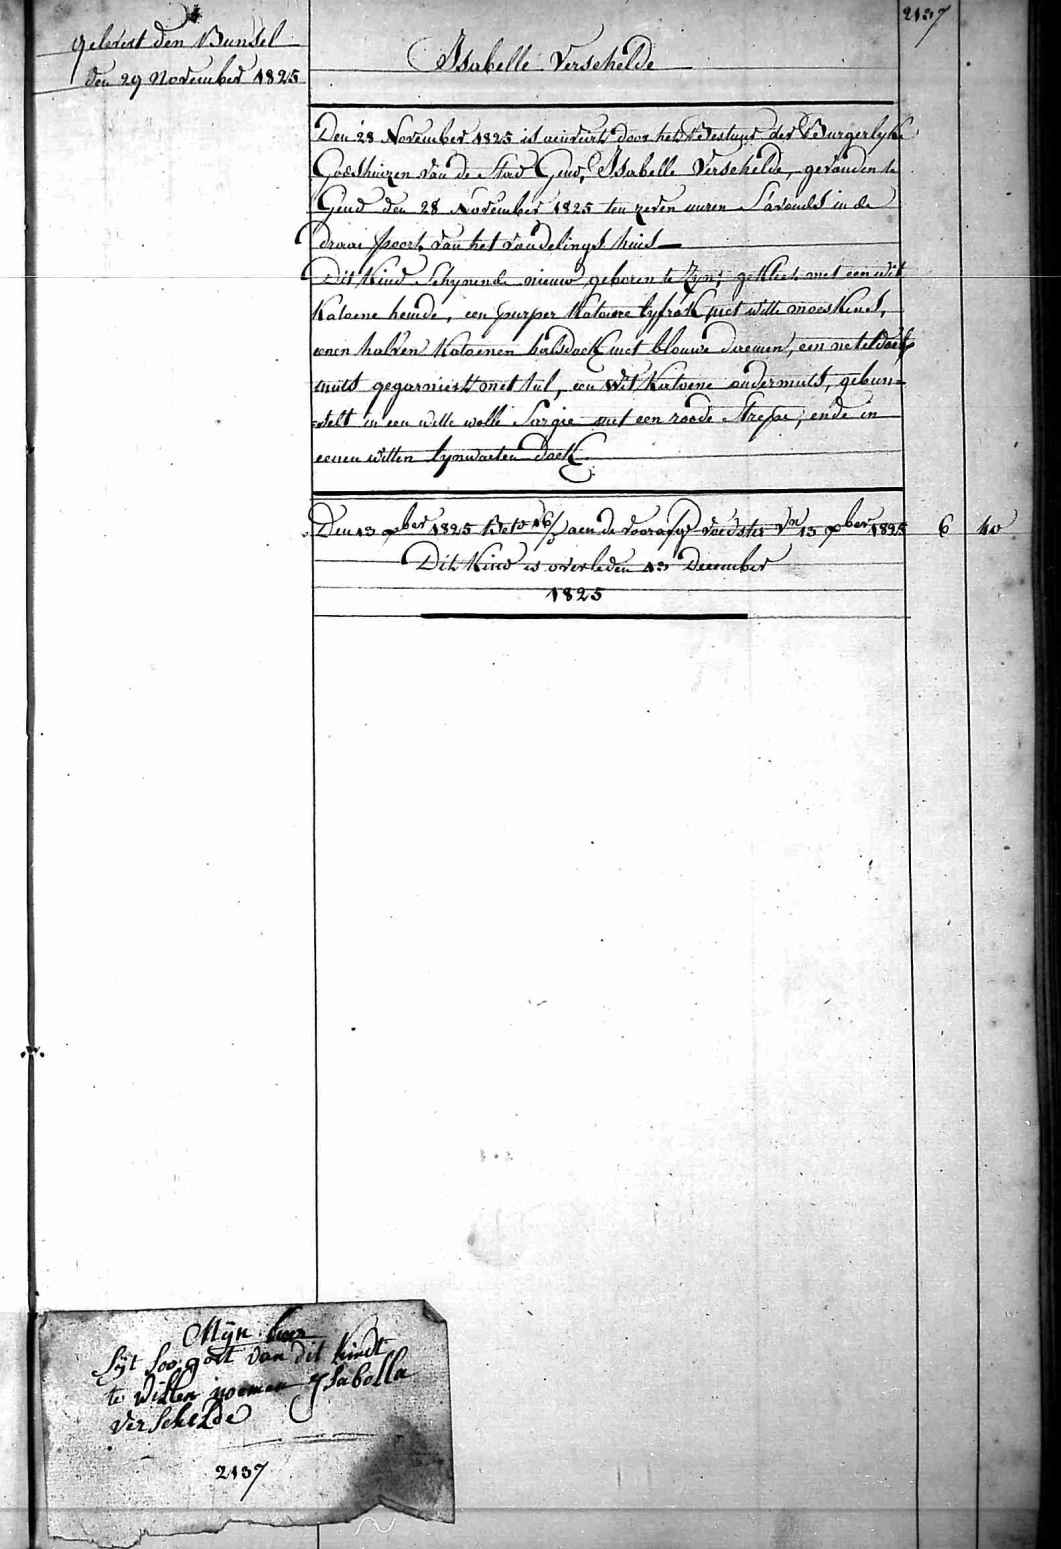 2137
gelevert den Bunsel
den 29 November 1825
Isabelle Verschelde
Den 28 November 1825 is aenveirt door het Bestuur der Burgerlyke
Godshuizen van de Stad Gend, Isabelle Verschelde, gevonden te
Gend den 28 November 1825 ten zeven uuren Savonds in de
draai poort van het vondelings huis
Dit Kind Schynende nieuw geboren te Zyn, gekleet met een wit
Katoene hemde, een purper Katoene lyfrok met witte moeskens,
eenen halven Katoenen halsdoek met blauwe dremen, een neteldoek
muts gegarniert met tul, een wit Katoene ondermuts, gebun=
=delt in een witte wolle Sargie met een roode Strepe, ende in
eenen witten lynwaeten doek.
Den 13 xber 1825 aen de voedster 13 xber 1825 6 40
Dit Kind is overleden 13 December
1825
Mijn heer
Syt soo goet van dit kindt
te willen noemen ysabella
verschelde
2137